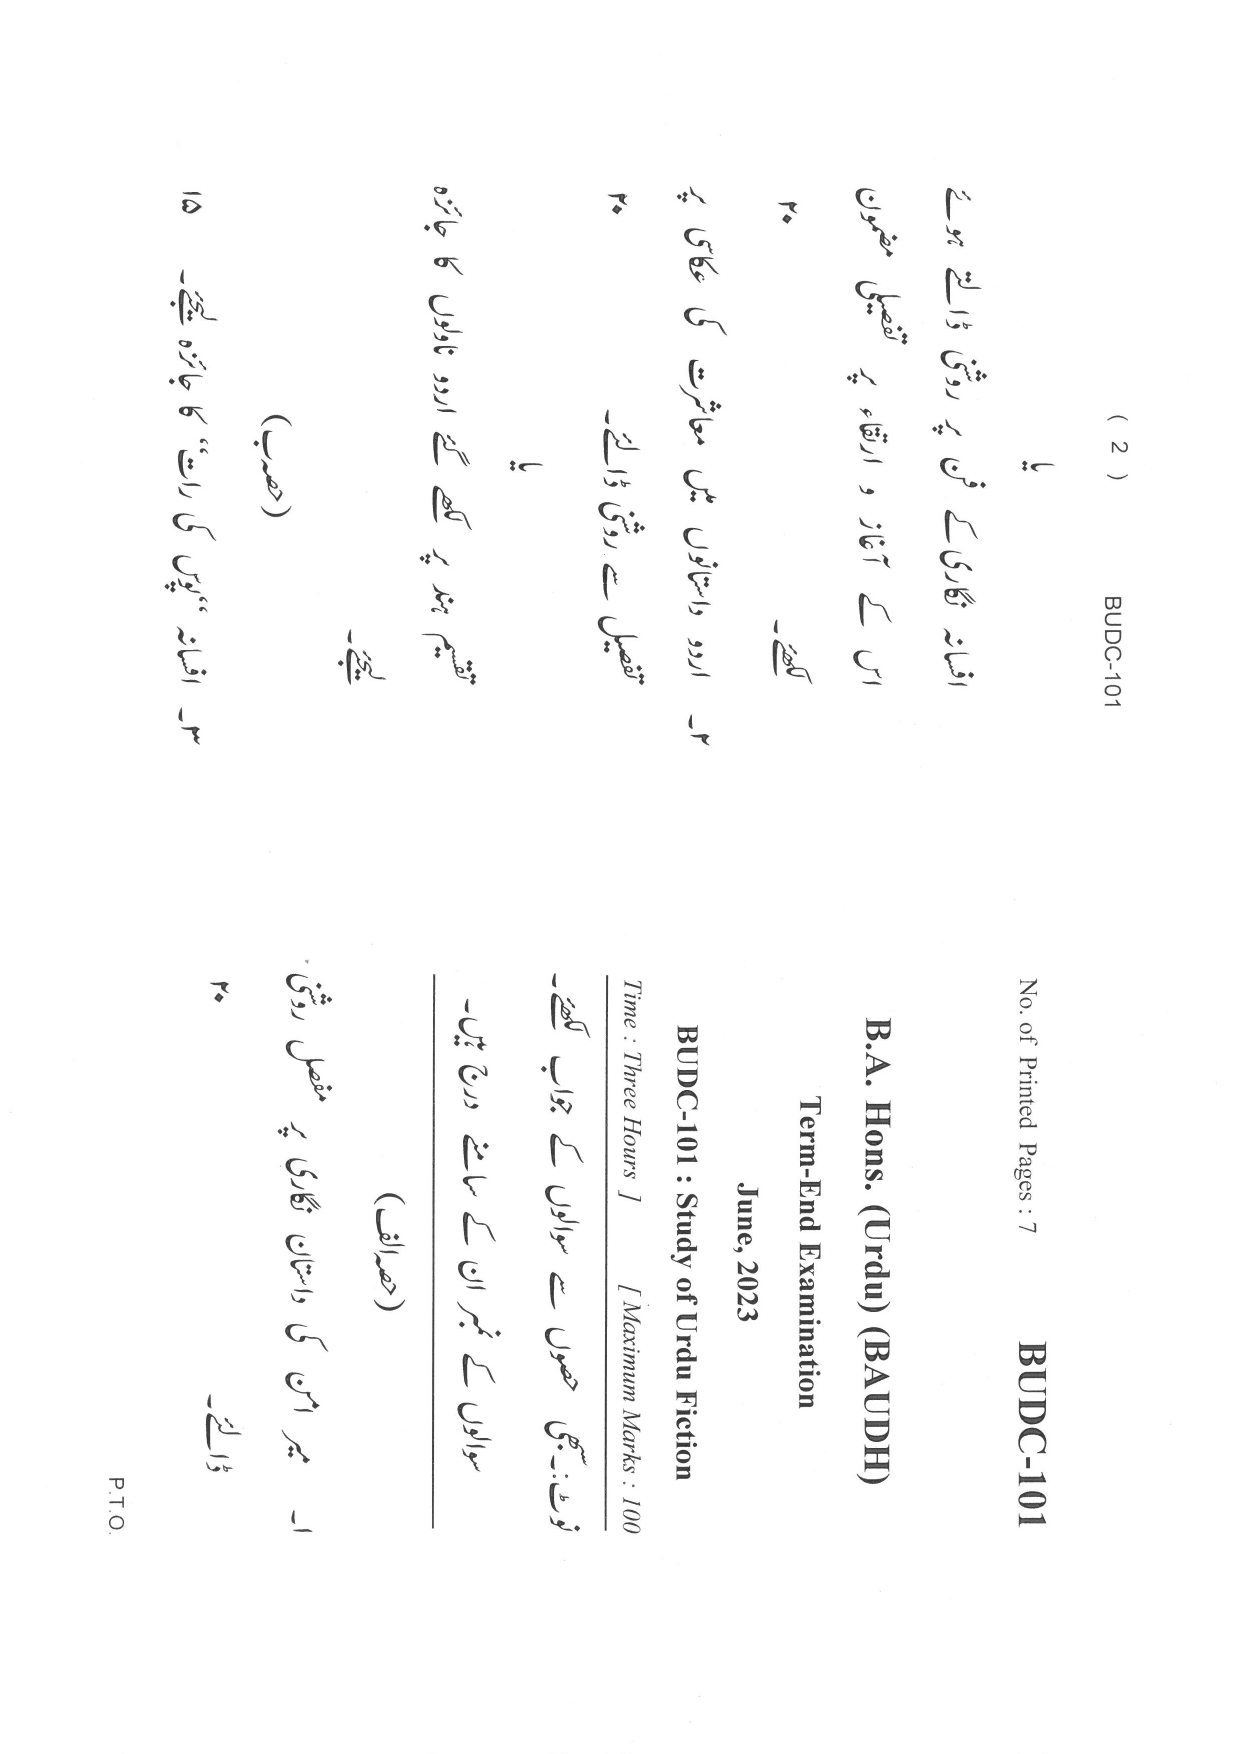 No. of Printed Pages : 7 BUDC-101
B.A. Hons. (Urdu) (BAUDH)
Term-End Examination
June, 2023
BUDC-101 : Study of Urdu Fiction
Time : Three Hours ] [ Maximum Marks : 100
نوٹ:۔ سبھی حصوں سے سوالوں کے جواب لکھئے۔
سوالوں کے نمبر ان کے سامنے درج ہیں۔
(حصہ الف)
۱۔ میر امن کی داستان نگاری پر مفصل روشنی
ڈالئے۔ ۲۰
P.T.O.
( 2 ) BUDC-101
یا
افسانہ نگاری کے فن پر روشنی ڈالتے ہوئے
اس کے آغاز و ارتقاء پر تفصیلی مضمون
لکھئے۔ ۲۰
۲۔ اردو داستانوں میں معاشرت کی عکاسی پر
تفصیل سے روشنی ڈالئے۔ ۲۰
یا
تقسیم ہند پر لکھے گئے اردو ناولوں کا جائزہ
لیجئے۔
(حصہ ب)
۳۔ افسانہ ‘‘پوس کی رات’’ کا جائزہ لیجئے۔ ۱۵